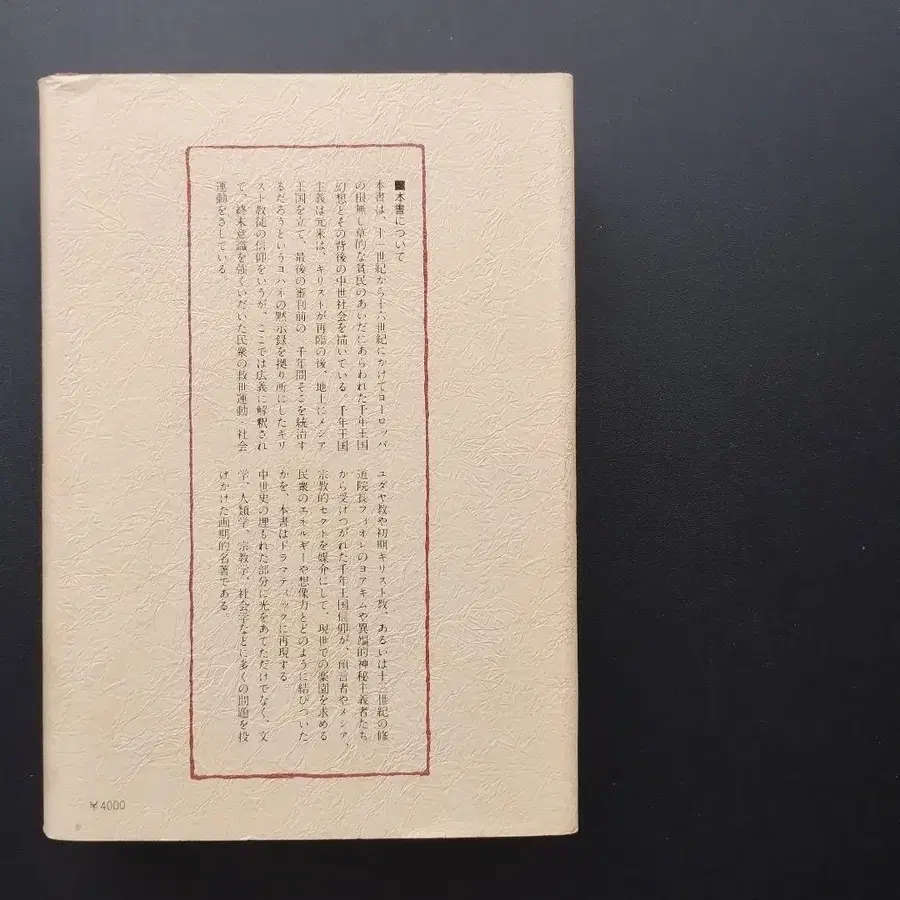 ■本書について
本書は、十一世紀から十六世紀にかけてヨーロッパ
の根無し草的な貧民のあいだにあらわれた千年王国
幻想とその背後の中世社会を描いている。千年王国
主義は元来は、キリストが再臨の後、地上にメシア
王国を立て、最後の審判前の一千年間そこを統治す
るだろうというヨハネの黙示録を拠り所にしたキリ
スト教徒の信仰をいうが、ここでは広義に解釈され
て、終末意識を強くいだいた民衆の救世運動・社会
運動をさしている。
ユダヤ教や初期キリスト教、あるいは十二世紀の修
道院長フィオレのヨアキムや異端的神秘主義者たち
から受けつがれた千年王国信仰が、預言者やメシア、
宗教的セクトを媒介にして、現世での楽園を求める
民衆のエネルギーや想像力とどのように結びついた
かを、本書はドラマティックに再現する
中世史の埋もれた部分に光をあてただけでなく、文
学、人類学、宗教学、社会学などに多くの問題を投
げかけた画期的名著である。
¥4000